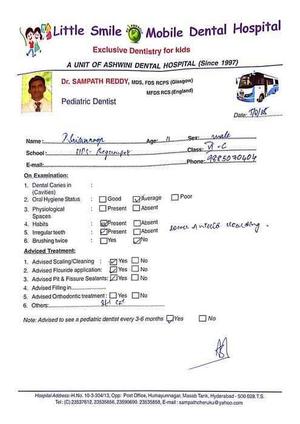 Little Smile Mobile Dental Hospital
Exclusive Dentistry for kids
A UNIT OF ASHWINI DENTAL HOSPITAL (Since 1997)
Dr. SAMPATH REDDY, MDS, FDS RCPS (Glasgow)
MFDS RCS (England)
Pediatric Dentist
Date:
Name: Age: 11 Sex: male
School: Class: VI-C
E-mail: Phone: 9885070404
On Examination:
1. Dental Caries in :
(Cavities)
2. Oral Hygiene Status : Good Average Poor
3. Physiological : Present Absent
Spaces
4. Habits : Present Absent
5. Irregular teeth : Present Absent
6. Brushing twice : Yes No
Adviced Treatment:
1. Advised Scaling/Cleaning : Yes No
2. Advised Flouride application: Yes No
3. Advised Pit & Fissure Sealants: Yes No
4. Advised Filling in
5. Advised Orthodontic treatment : Yes No
6. Others:
Note: Advised to see a pediatric dentist every 3-6 months Yes No
Hospital Address: H.No. 10-3-304/13, Opp: Post Office, Humayunnagar, Masab Tank, Hyderabad - 500 028 T.S.
Tel: (C) 23537612, 23535858, 23590690, 23535858, E-mail : sampathcheruku@yahoo.com